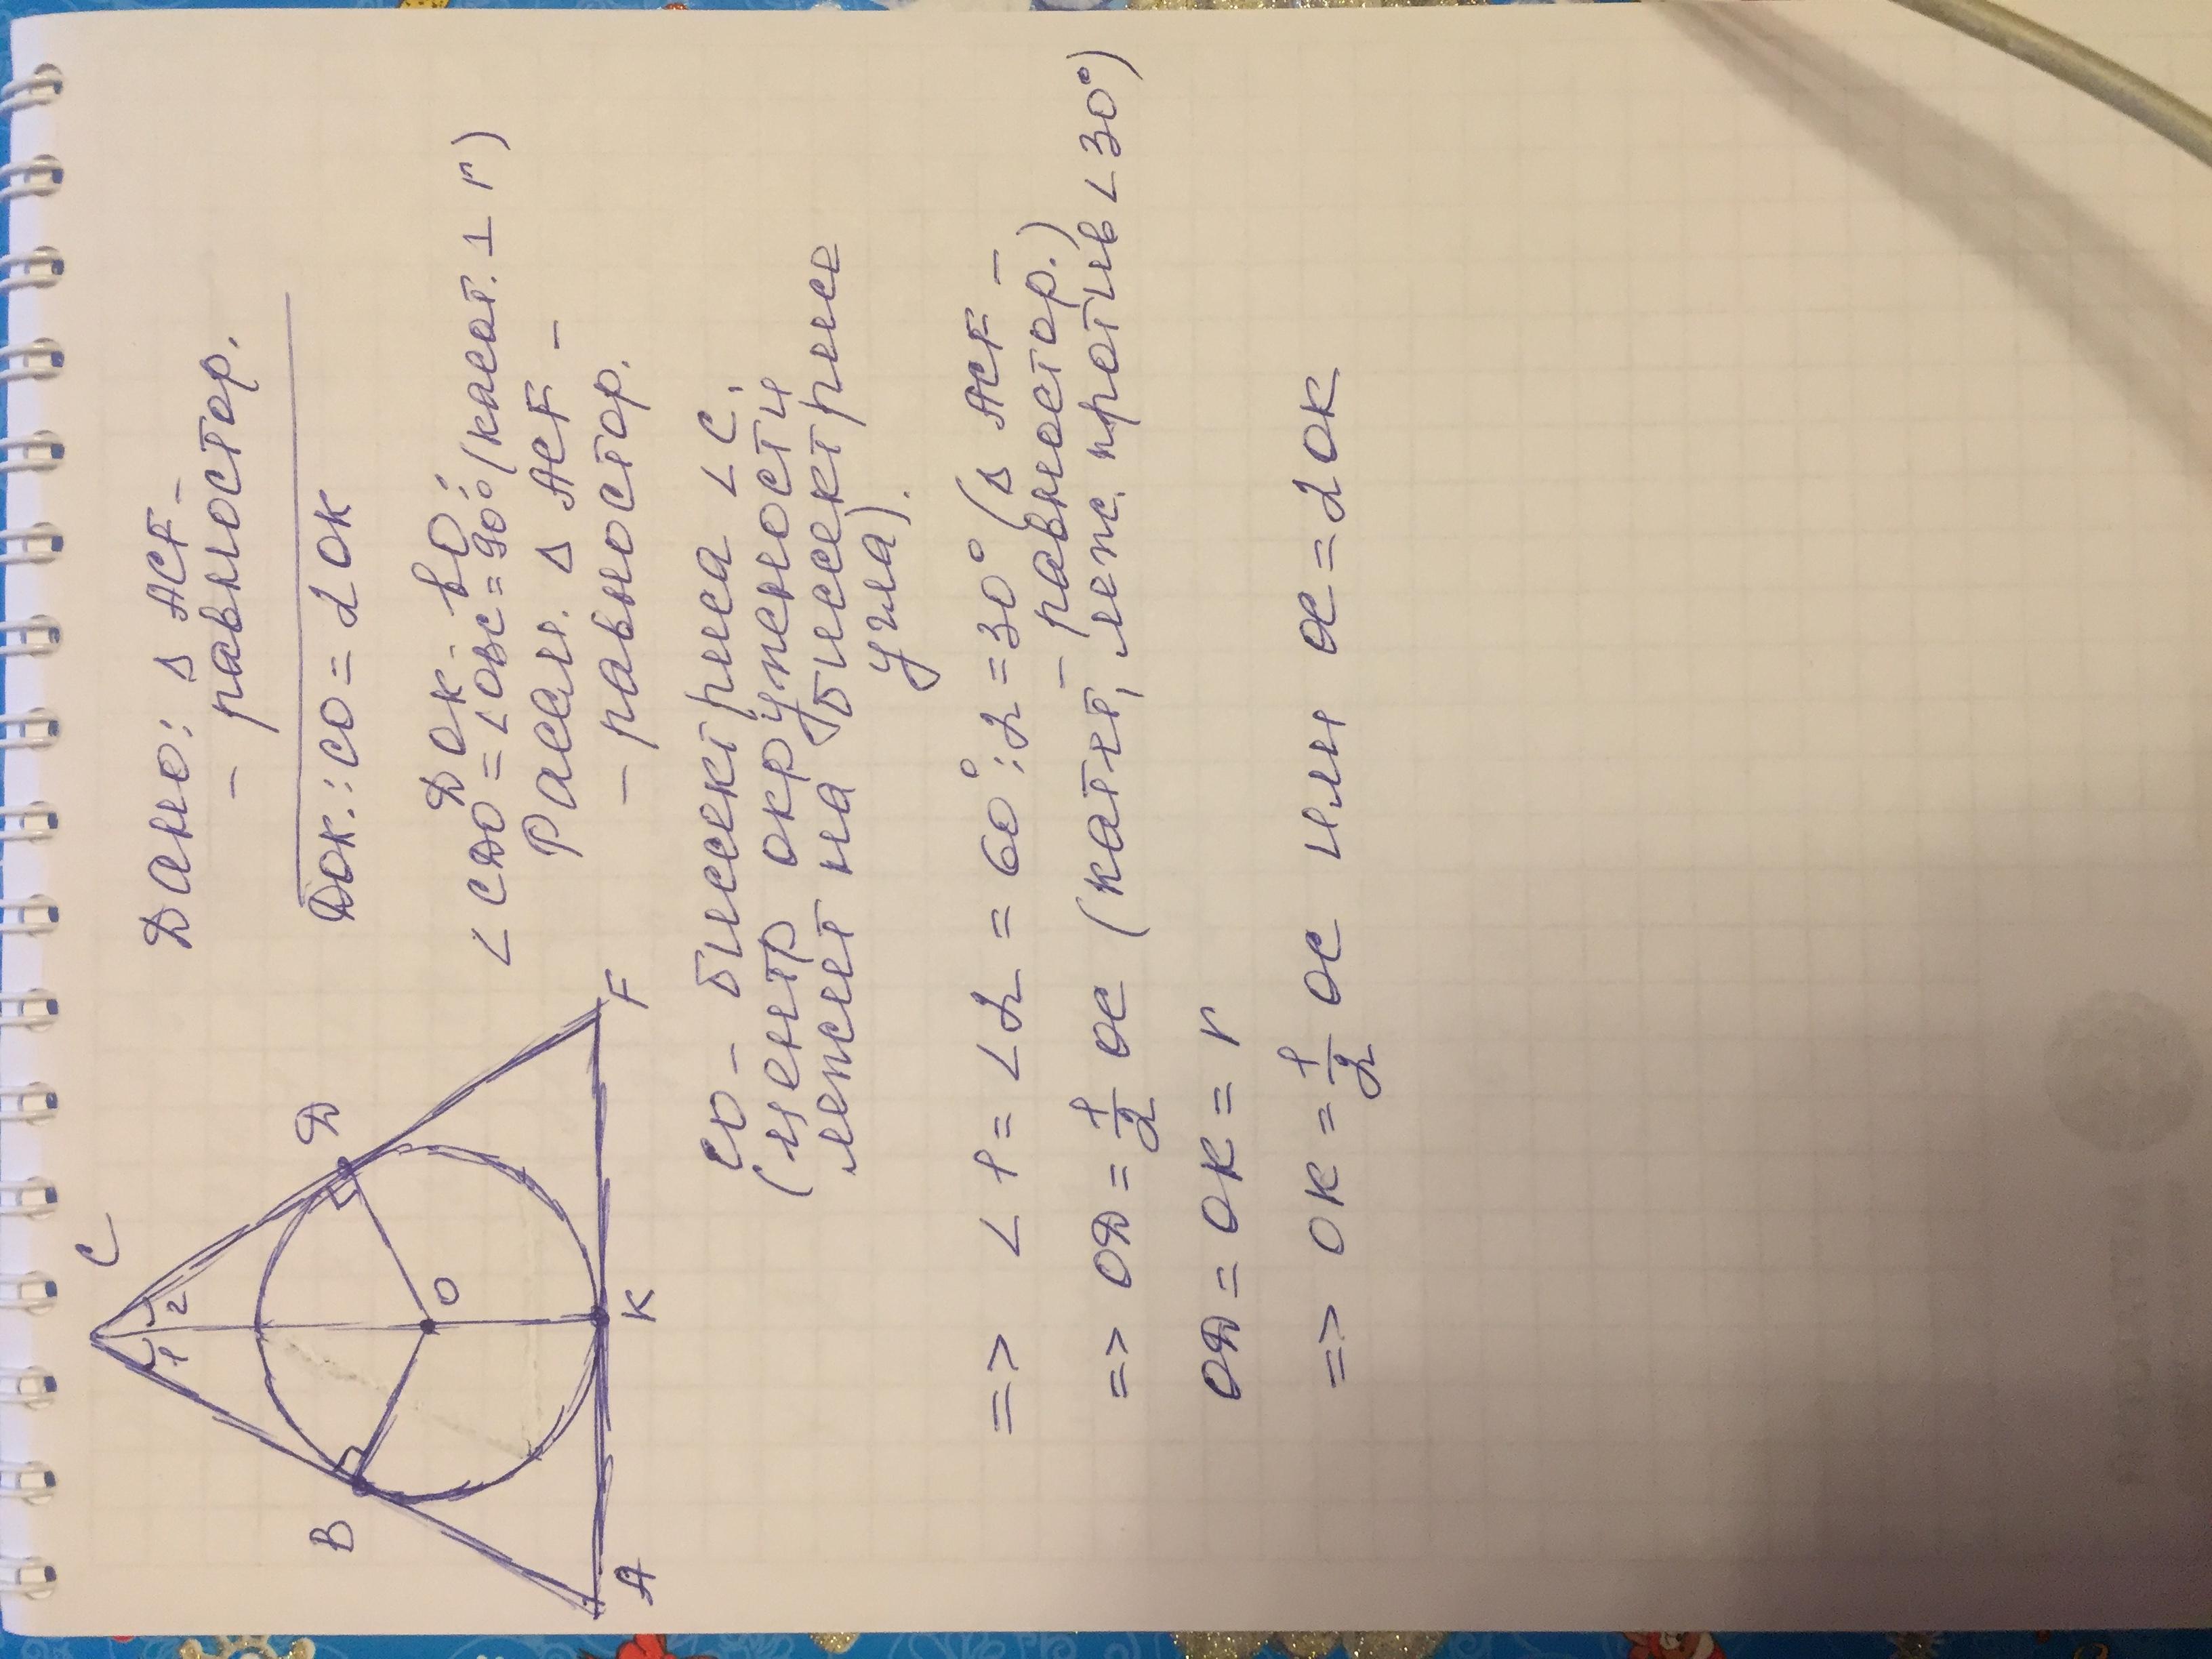 C
B
Д
1
2
O
A
K
F
Дано: Δ ACF -
- равностор.
Док.: CO = 2 OK
Док-во:
∠ CДO = ∠ OBC = 90° (касат. ⊥ r)
Рассм. Δ ACF -
- равностор.
CO - биссектриса ∠ C.
(центр окружности
лежит на биссектрисе
угла).
=> ∠ 1 = ∠ 2 = 60° : 2 = 30° (Δ ACF -
- равностор.)
=> OД = 1/2 OC (катет, леж. против ∠ 30°)
OД = OK = r
=> OK = 1/2 OC или OC = 2 OK